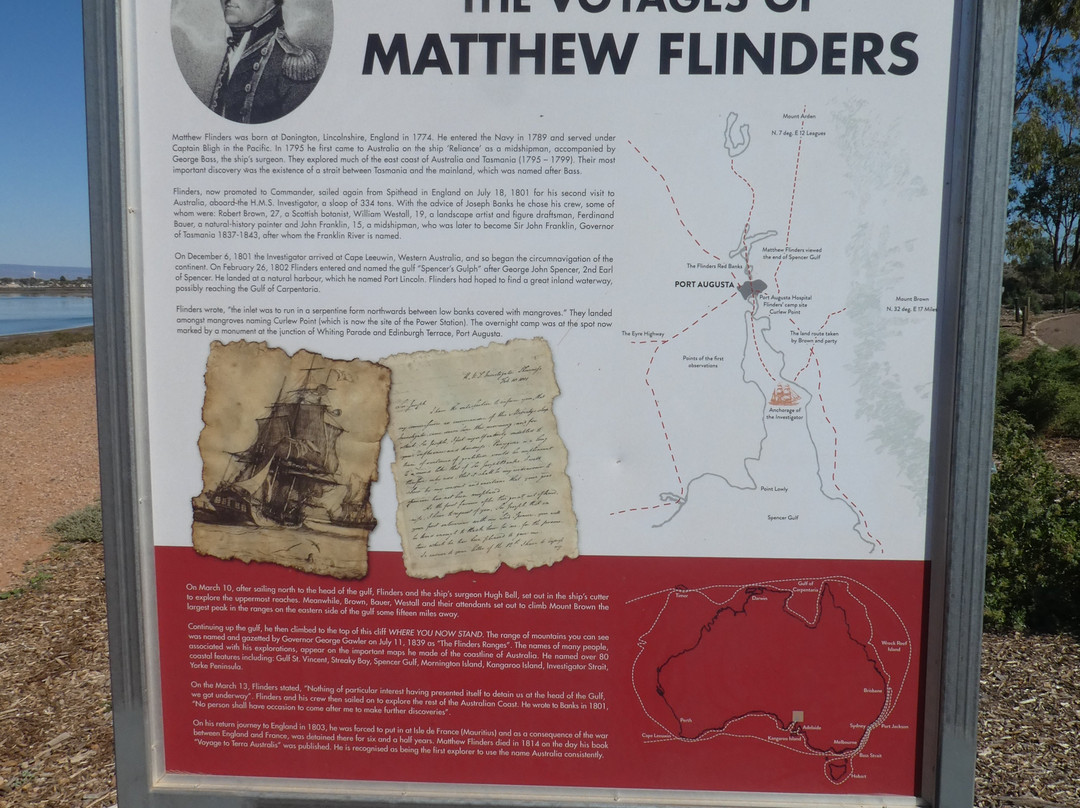 THE VOYAGES OF
MATTHEW FLINDERS
Matthew Flinders was born at Donington, Lincolnshire, England in 1774. He entered the Navy in 1789 and served under
Captain Bligh in the Pacific. In 1795 he first came to Australia on the ship 'Reliance' as a midshipman, accompanied by
George Bass, the ship's surgeon. They explored much of the east coast of Australia and Tasmania (1795 – 1799). Their most
important discovery was the existence of a strait between Tasmania and the mainland, which was named after Bass.
Flinders, now promoted to Commander, sailed again from Spithead in England on July 18, 1801 for his second visit to
Australia, aboard the H.M.S. Investigator, a sloop of 334 tons. With the advice of Joseph Banks he chose his crew, some of
whom were: Robert Brown, 27, a Scottish botanist, William Westall, 19, a landscape artist and figure draftsman, Ferdinand
Bauer, a natural-history painter and John Franklin, 15, a midshipman, who was later to become Sir John Franklin, Governor
of Tasmania 1837-1843, after whom the Franklin River is named.
On December 6, 1801 the Investigator arrived at Cape Leeuwin, Western Australia, and so began the circumnavigation of the
continent. On February 26, 1802 Flinders entered and named the gulf "Spencer's Gulph" after George John Spencer, 2nd Earl
of Spencer. He landed at a natural harbour, which he named Port Lincoln. Flinders had hoped to find a great inland waterway,
possibly reaching the Gulf of Carpentaria.
Flinders wrote, "the inlet was to run in a serpentine form northwards between low banks covered with mangroves." They landed
amongst mangroves naming Curlew Point (which is now the site of the Power Station). The overnight camp was at the spot now
marked by a monument at the junction of Whiting Parade and Edinburgh Terrace, Port Augusta.
Mount Arden
N. 7 deg. E 12 Leagues
Matthew Flinders viewed
the end of Spencer Gulf
The Flinders Red Banks
PORT AUGUSTA
Port Augusta Hospital
Flinders' camp site
Curlew Point
Mount Brown
N. 32 deg. E 17 Miles
The Eyre Highway
The land route taken
by Brown and party
Points of the first
observations
Anchorage of
the Investigator
Point Lowly
Spencer Gulf
On March 10, after sailing north to the head of the gulf, Flinders and the ship's surgeon Hugh Bell, set out in the ship's cutter
to explore the uppermost reaches. Meanwhile, Brown, Bauer, Westall and their attendants set out to climb Mount Brown the
largest peak in the ranges on the eastern side of the gulf some fifteen miles away.
Continuing up the gulf, he then climbed to the top of this cliff WHERE YOU NOW STAND. The range of mountains you can see
was named and gazetted by Governor George Gawler on July 11, 1839 as "The Flinders Ranges". The names of many people,
associated with his explorations, appear on the important maps he made of the coastline of Australia. He named over 80
coastal features including: Gulf St. Vincent, Streaky Bay, Spencer Gulf, Mornington Island, Kangaroo Island, Investigator Strait,
Yorke Peninsula.
On the March 13, Flinders stated, "Nothing of particular interest having presented itself to detain us at the head of the Gulf,
we got underway". Flinders and his crew then sailed on to explore the rest of the Australian Coast. He wrote to Banks in 1801,
"No person shall have occasion to come after me to make further discoveries".
On his return journey to England in 1803, he was forced to put in at Isle de France (Mauritius) and as a consequence of the war
between England and France, was detained there for six and a half years. Matthew Flinders died in 1814 on the day his book
"Voyage to Terra Australis" was published. He is recognised as being the first explorer to use the name Australia consistently.
Timor
Darwin
Gulf of
Carpentaria
Wreck Reef
Island
Brisbane
Perth
Cape Leeuwin
Adelaide
Kangaroo Island
Sydney
Port Jackson
Melbourne
Bass Strait
Hobart